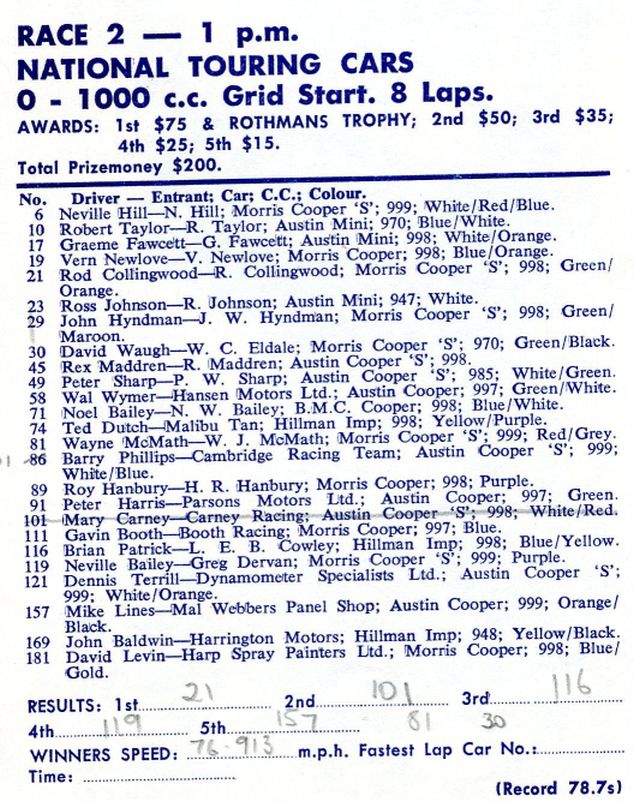 RACE 2 — 1 p.m.
NATIONAL TOURING CARS
0 - 1000 c.c. Grid Start. 8 Laps.
AWARDS: 1st $75 & ROTHMANS TROPHY; 2nd $50; 3rd $35;
4th $25; 5th $15.
Total Prizemoney $200.
No. Driver — Entrant; Car; C.C.; Colour.
6 Neville Hill—N. Hill; Morris Cooper 'S'; 999; White/Red/Blue.
10 Robert Taylor—R. Taylor; Austin Mini; 970; Blue/White.
17 Graeme Fawcett—G. Fawcett; Austin Mini; 998; White/Orange.
19 Vern Newlove—V. Newlove; Morris Cooper; 998; Blue/Orange.
21 Rod Collingwood—R. Collingwood; Morris Cooper 'S'; 998; Green/
Orange.
23 Ross Johnson—R. Johnson; Austin Mini; 947; White.
29 John Hyndman—J. W. Hyndman; Morris Cooper 'S'; 998; Green/
Maroon.
30 David Waugh—W. C. Eldale; Morris Cooper 'S'; 970; Green/Black.
45 Rex Maddren—R. Maddren; Austin Cooper 'S'; 998.
49 Peter Sharp—P. W. Sharp; Austin Cooper 'S'; 985; White/Green.
58 Wal Wymer—Hansen Motors Ltd.; Austin Cooper; 997; Green/White.
71 Noel Bailey—N. W. Bailey; B.M.C. Cooper; 998; Blue/White.
74 Ted Dutch—Malibu Tan; Hillman Imp; 998; Yellow/Purple.
81 Wayne McMath—W. J. McMath; Morris Cooper 'S'; 999; Red/Grey.
01 86 Barry Phillips—Cambridge Racing Team; Austin Cooper 'S'; 999;
White/Blue.
89 Roy Hanbury—H. R. Hanbury; Morris Cooper; 998; Purple.
91 Peter Harris—Parsons Motors Ltd.; Austin Cooper; 997; Green.
101 Mary Carney—Carney Racing; Austin Cooper 'S'; 998; White/Red.
111 Gavin Booth—Booth Racing; Morris Cooper; 997; Blue.
116 Brian Patrick—L. E. B. Cowley; Hillman Imp; 998; Blue/Yellow.
119 Neville Bailey—Greg Dervan; Morris Cooper 'S'; 999; Purple.
121 Dennis Terrill—Dynamometer Specialists Ltd.; Austin Cooper 'S';
999; White/Orange.
157 Mike Lines—Mal Webbers Panel Shop; Austin Cooper; 999; Orange/
Black.
169 John Baldwin—Harrington Motors; Hillman Imp; 948; Yellow/Black.
181 David Levin—Harp Spray Painters Ltd.; Morris Cooper; 998; Blue/
Gold.
RESULTS: 1st 21 2nd 101 3rd 116
4th 119 5th 157 81 30
WINNERS SPEED: 76.913 m.p.h. Fastest Lap Car No.:
Time:
(Record 78.7s)